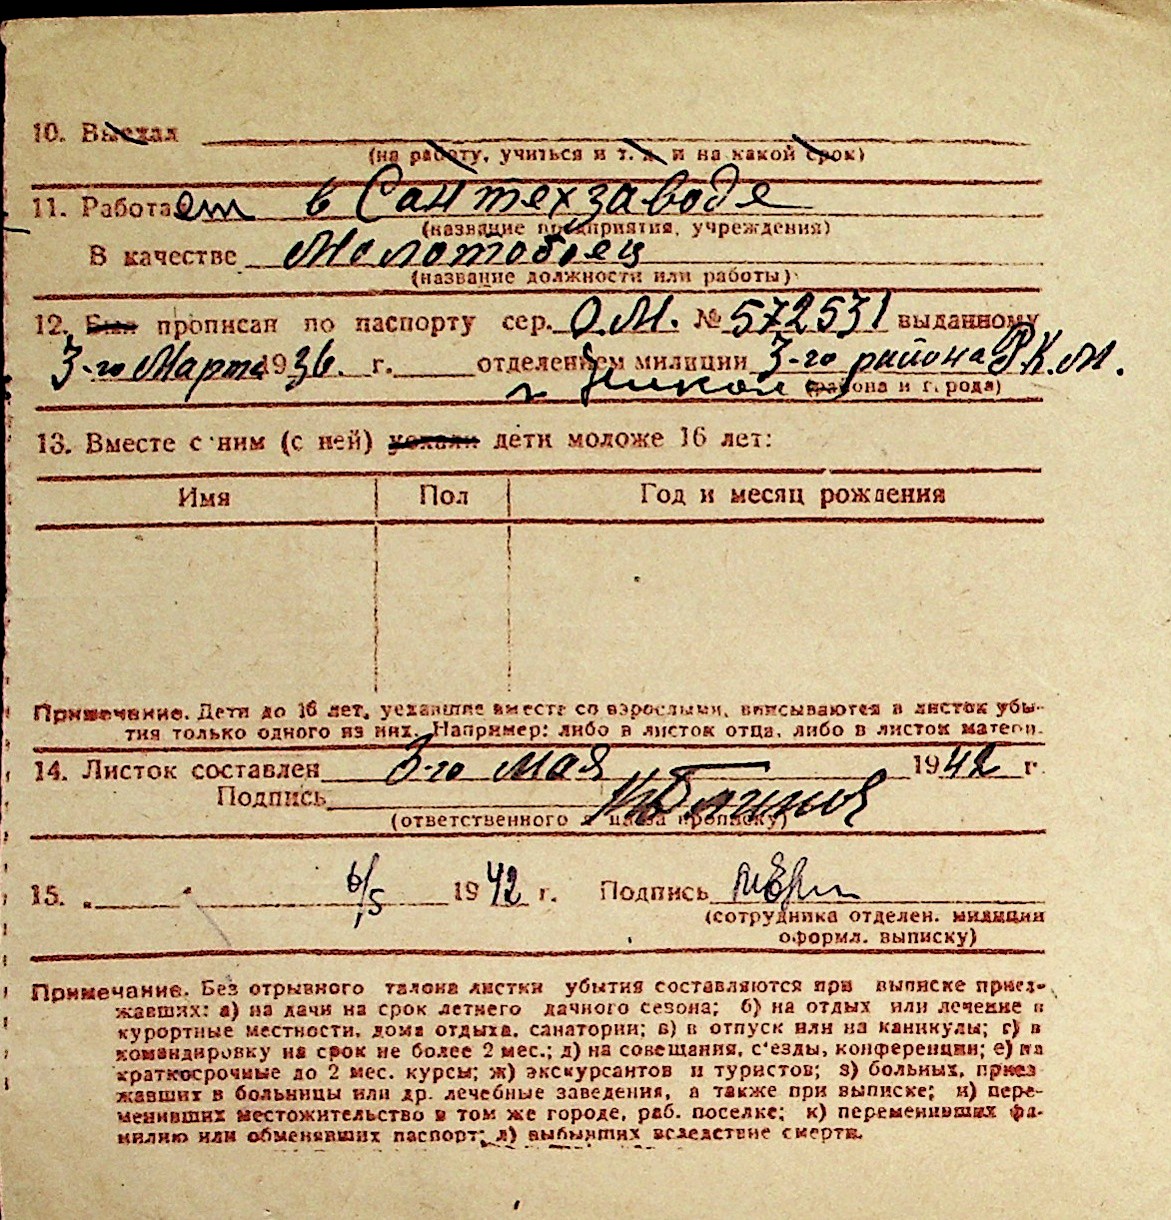 10. Выехал
(на работу, учиться и т. д. и на какой срок)
11. Работает в Сантехзаводе
(название предприятия, учреждения)
В качестве Молотобоец
(название должности или работы)
12. Был прописан по паспорту сер. О.М. № 572531 выданному
3-го Марта 1936. г. отделением милиции 3-го района Р.К.М.
г.
(района и города)
13. Вместе с ним (с ней) уехали дети моложе 16 лет:
Имя Пол Год и месяц рождения
Примечание. Дети до 16 лет, уехавшие вместе со взрослыми, вписываются в листок убы-
тия только одного из них. Например: либо в листок отца, либо в листок матери.
14. Листок составлен 3-го мая 1942 г.
Подпись
(ответственного за прописку)
15. 6/5 1942 г. Подпись
(сотрудника отделен. милиции
оформл. выписку)
Примечание. Без отрывного талона листки убытия составляются при выписке приез-
жавших: а) на дачи на срок летнего дачного сезона; б) на отдых или лечение в
курортные местности, дома отдыха, санатории; в) в отпуск или на каникулы; г) в
командировку на срок не более 2 мес.; д) на совещания, с'езды, конференции; е) на
краткосрочные до 2 мес. курсы; ж) экскурсантов и туристов; з) больных, приез
жавших в больницы или др. лечебные заведения, а также при выписке; и) пере-
менивших местожительство в том же городе, раб. поселке; к) переменивших фа-
милию или обменявших паспорт; л) выбывших вследствие смерти.